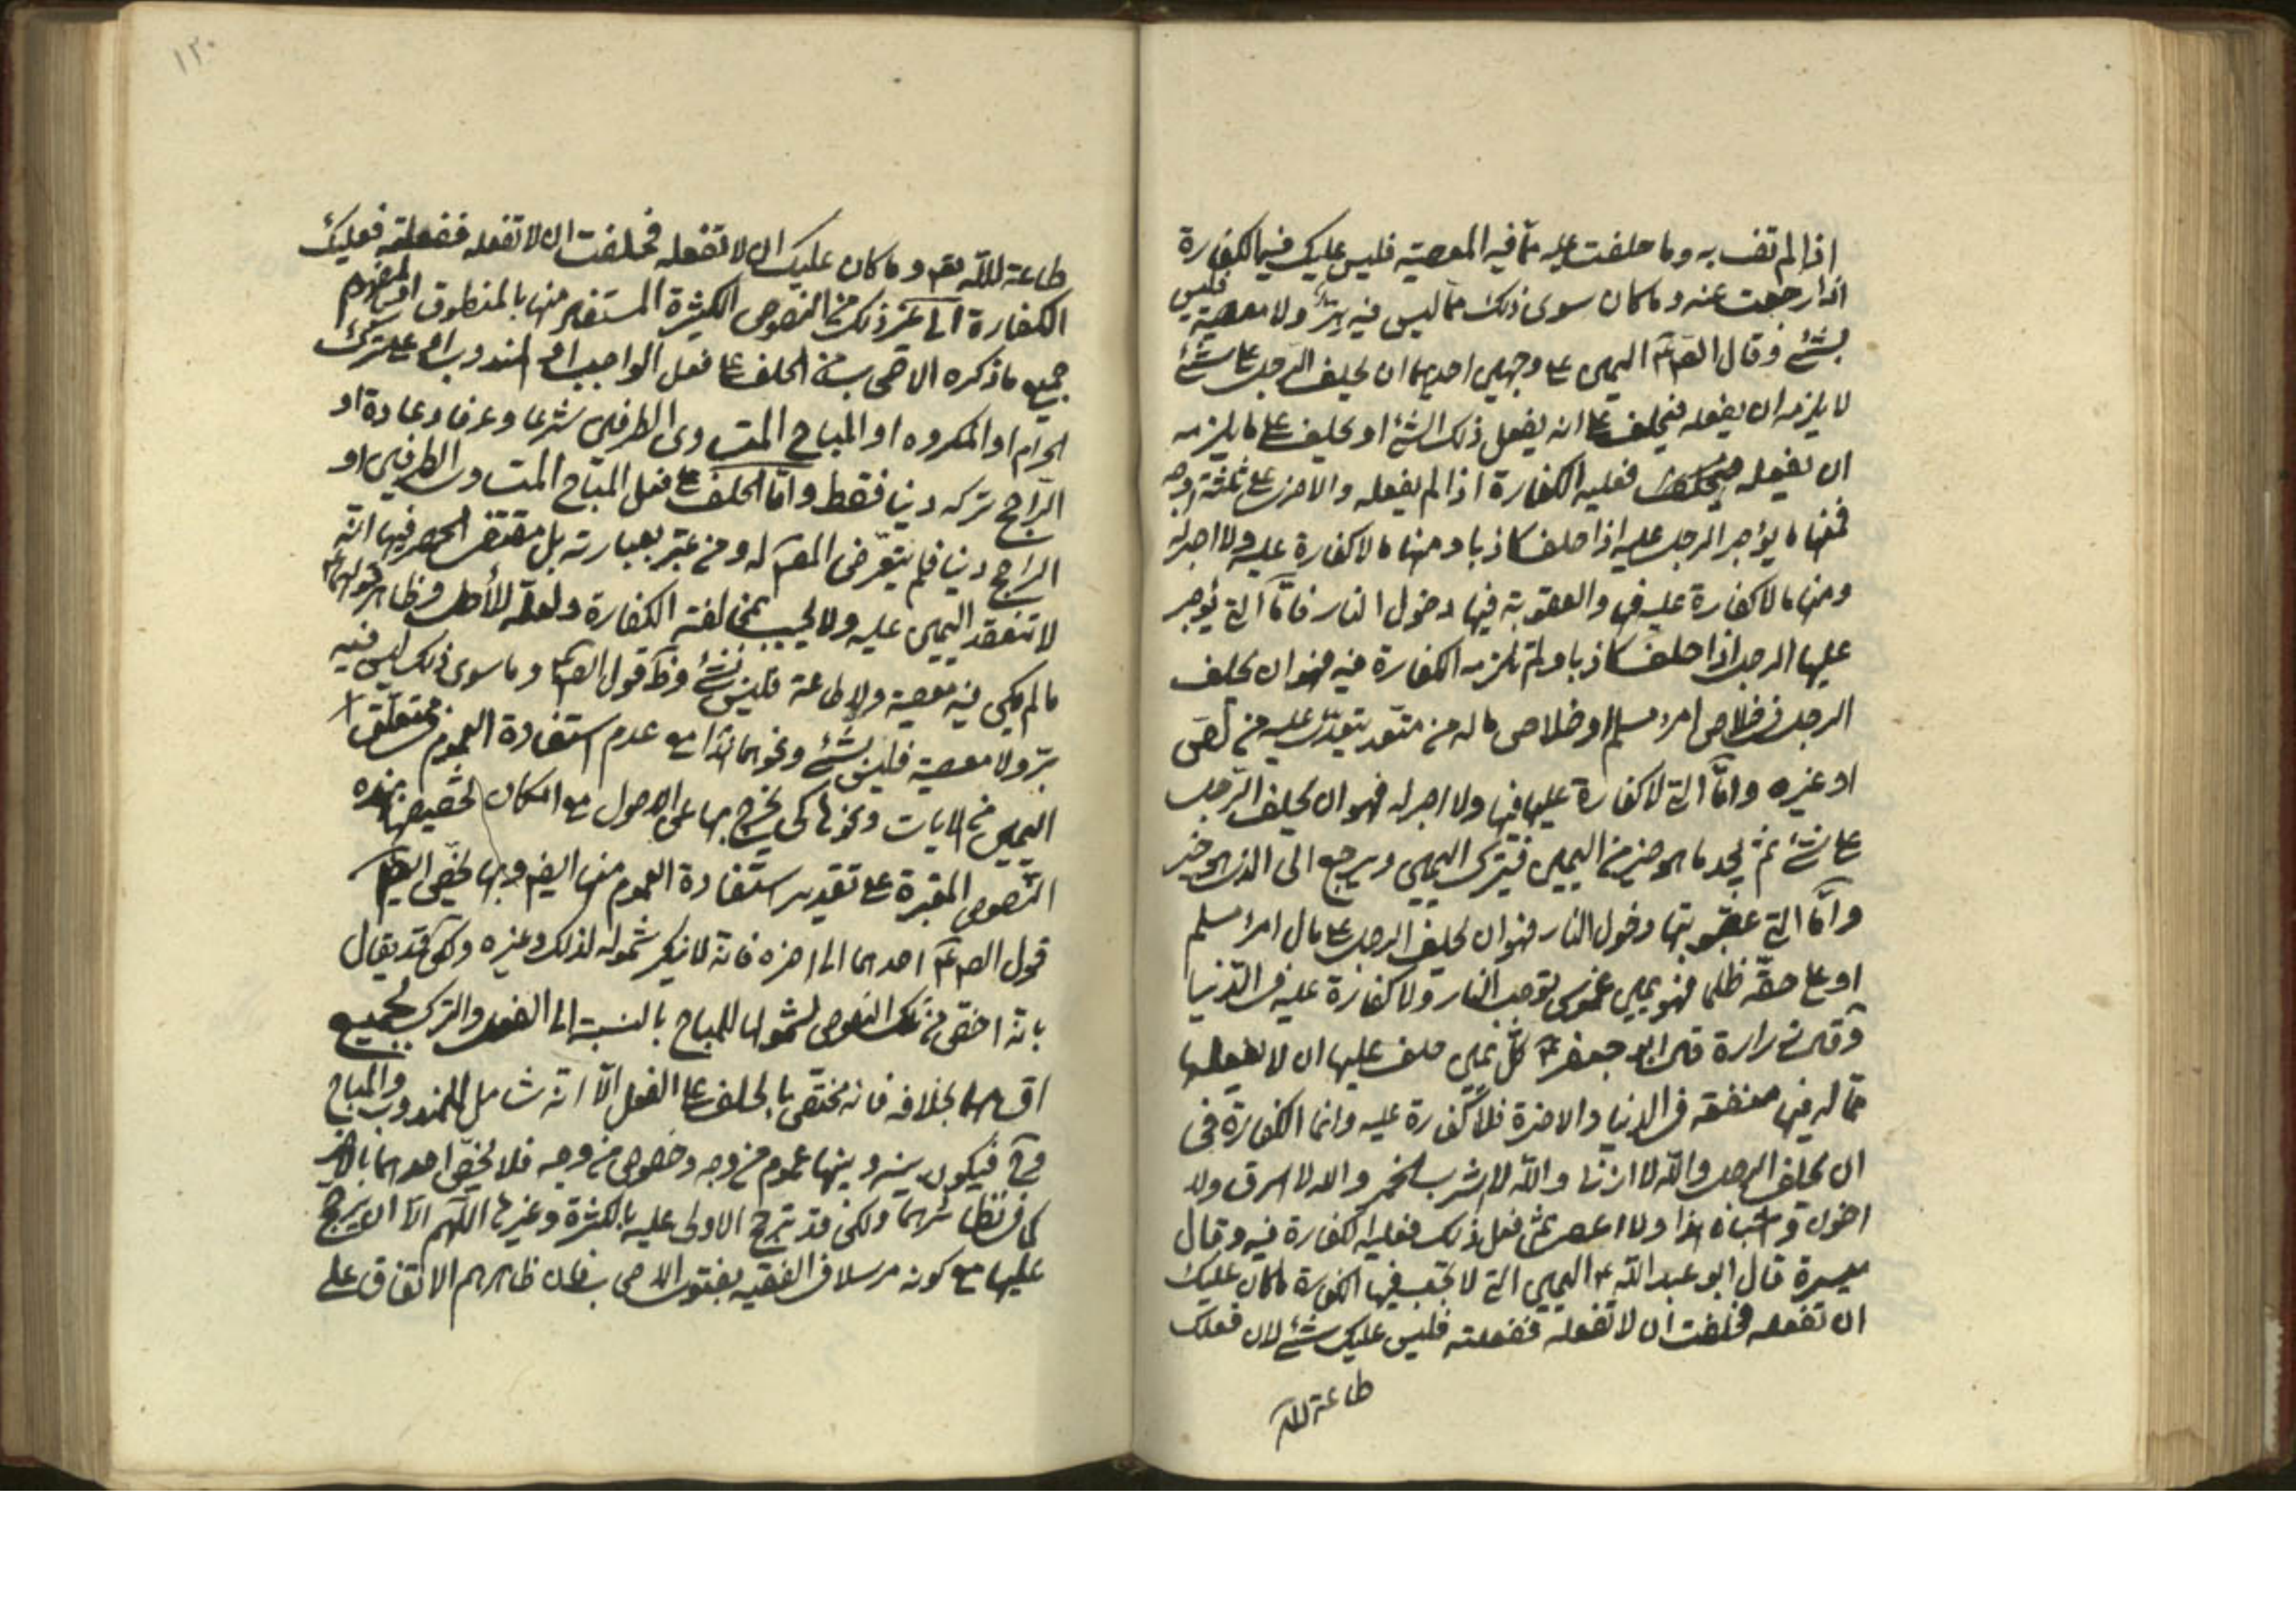 اذا لم تف به وما حلفت عليه مما فيه المعصية فليس عليك فيه الكفارة
اذا رجعت عنه وما كان سوى ذلك مما ليس فيه بر ولا معصية فليس
بشئ وقال الصم اليمين على وجهين احدهما ان يحلف الرجل على شئ
لا يلزمه ان يفعله فيحلف انه يفعل ذلك الشئ او يحلف على ما يلزمه
ان يفعله فعليه الكفارة اذا لم يفعله والاخرى على ثلثة اوجه
فمنها ما يؤجر الرجل عليه اذا حلف كاذبا ومنها ما لا كفارة عليه ولا اجر له
ومنها ما لا كفارة عليه فيها والعقوبة فيها دخول النار فاما التي يؤجر
عليها الرجل اذا حلف كاذبا ولم تلزمه الكفارة فيه فهو ان يحلف
الرجل في خلاص امرء مسلم او خلاص ماله من متعد يتعدى عليه من لص
او غيره واما التي لا كفارة عليه فيها ولا اجر له فهو ان يحلف الرجل
على شئ ثم يجد ما هو خير من اليمين فيترك اليمين ويرجع الى الذي هو خير
واما التي عقوبتها دخول النار فهو ان يحلف الرجل على مال امرء مسلم
او على حقه ظلما فهو يمين غموس توجب النار ولا كفارة عليه في الدنيا
وقال زرارة قال ابو جعفر ع كل يمين حلف عليها ان لا يفعلها
مما له فيها منفعة في الدنيا والاخرة فلا كفارة عليه وانما الكفارة في
ان يحلف الرجل والله لا ازنا والله لا اشرب الخمر والله لا اسرق ولا
اخون واشباه هذا ولا اعصى ثم فعل ذلك فعليه الكفارة فيه وقال
ميسرة قال ابو عبد الله ع اليمين التي لا تجب فيها الكفارة ما كان عليك
ان تفعله فحلفت ان لا تفعله ففعلته فليس عليك شئ لان فعلك
طاعة لله
١٢٠
طاعة لله تعم وما كان عليك ان لا تفعله فحلفت ان لا تفعله ففعلته فعليك
الكفارة الى غير ذلك من النصوص الكثيرة المستفيد منها بالمنطوق او المفهوم
جميع ما ذكره الاصحاب من الحلف على فعل الواجب او المندوب او على ترك
الحرام او المكروه او المباح المتساوى الطرفين شرعا وعرفا وعادة او
الراجح تركه دنيا فقط واما الحلف على فعل المباح المتساوى الطرفين او
الراجح دنيا فلم يتعرض المصم له ومن عبر بعبارته بل مقتضى الحصر فيها انه
لا تنعقد اليمين عليه ولا يجب بمخالفته الكفارة ولعله للأصل وظاهر قولهم ع
ما لم يكن فيه معصية ولا طاعة فليس بشئ وظ قول الصم وما سوى ذلك ليس فيه
بر ولا معصية فليس بشئ ونحوهما هذا مع عدم استفادة العموم
اليمين من الايات ونحوها كى يخرج بها على الاصول مع امكان تخصيصها بهذه
النصوص المعتبرة على تقدير استفادة العموم منها ايضم وبها يخص ايضم
قول الصم ع احدهما الى اخره فانه لا ينكر شموله لذلك وغيره ولكن قد يقال
بانه اخص من تلك النصوص لشمولها للمباح بالنسبة الى الفعل والترك بجميع
اقسامهما بخلافه فانه مختص بالحلف على الفعل الا انه شامل للمندوب والمباح
وح فيكون بينه وبينها عموم من وجه وخصوص من وجه فلا يخص احدهما بالاخر
كما في نظائرهما ولكن قد ترجح الاولى عليه بالكثرة وغيرها اللهم الا ان يرجح
عليها مع كونه مرسلا في الفقيه بفتوى الاصحاب فان ظاهرهم الاتفاق على